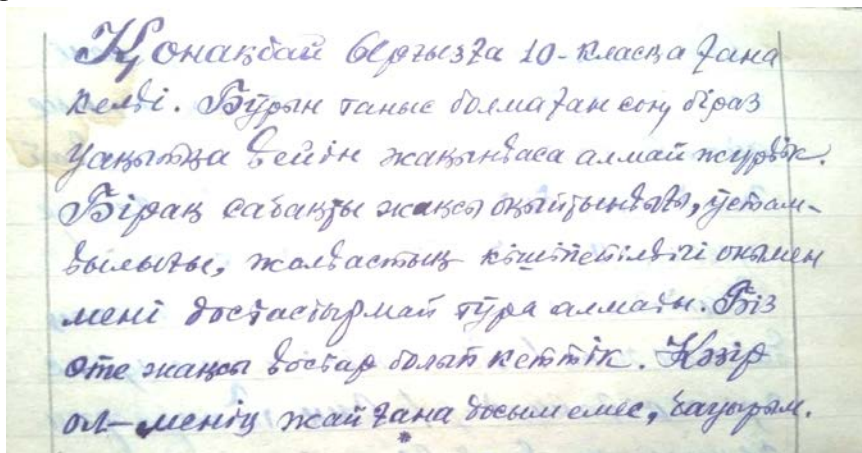 Қонақбай бергызға 10-класқа ғана
келді. Бұрын таныс болмаған соң біраз
уақытқа дейін жақындаса алмай жүрдік.
Бірақ сабақты жақсы оқыйтындығы, ұстам-
дылығы, жолдастық кішіпейілділігі онымен
мені достастырмай тұра алмады. Біз
өте жақсы достар болып кеттік. Қәзір
ол— менің жай ғана досым емес, бауырым.